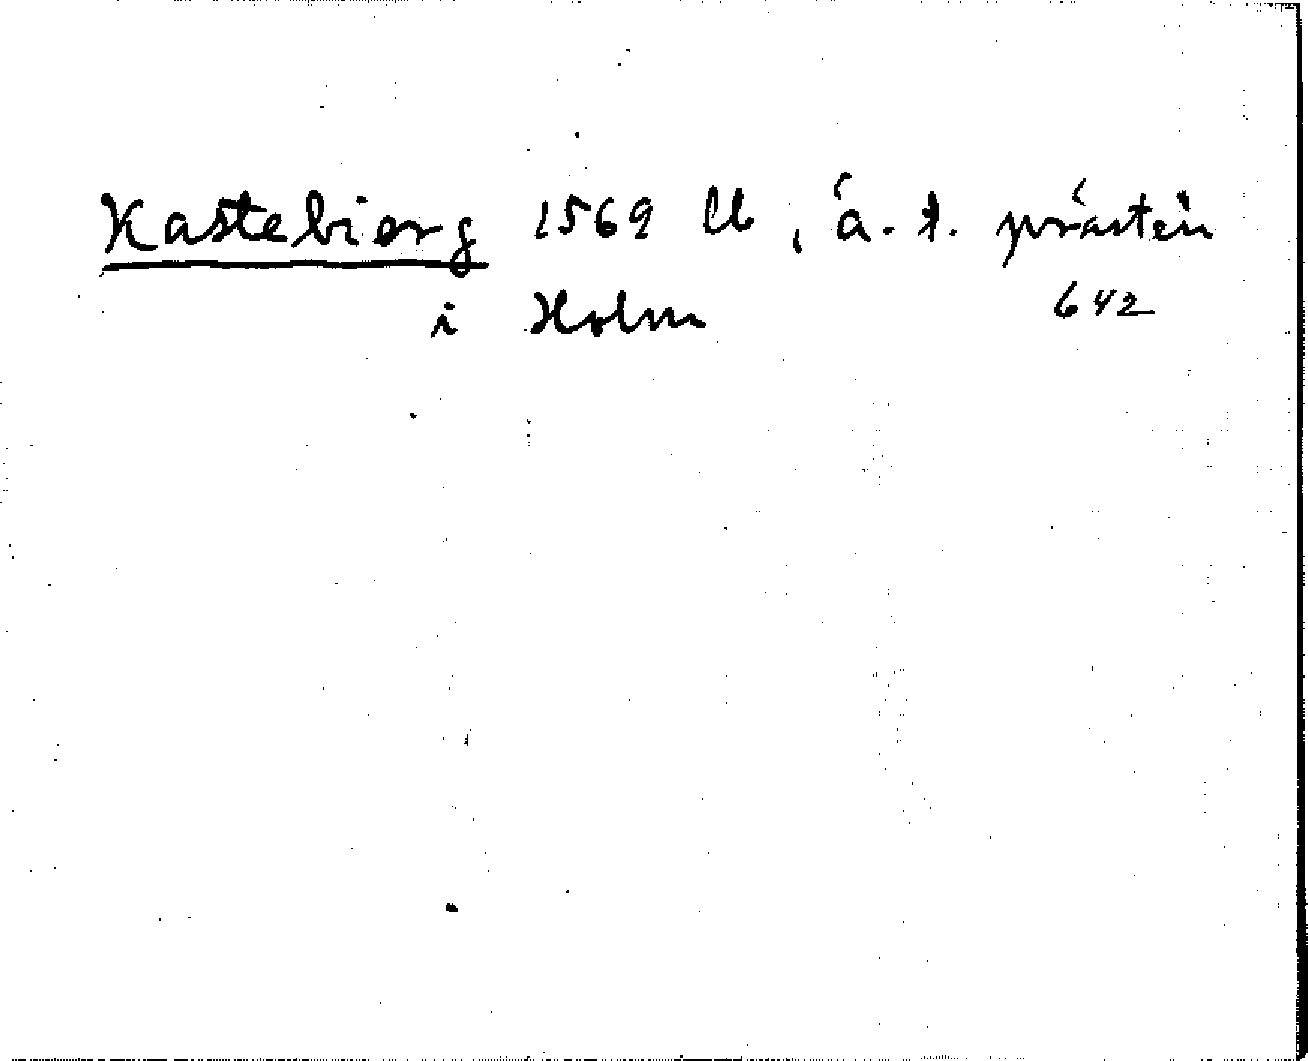 Kastebierg 1569 Ub, ä. t. prästen
i Holm 642